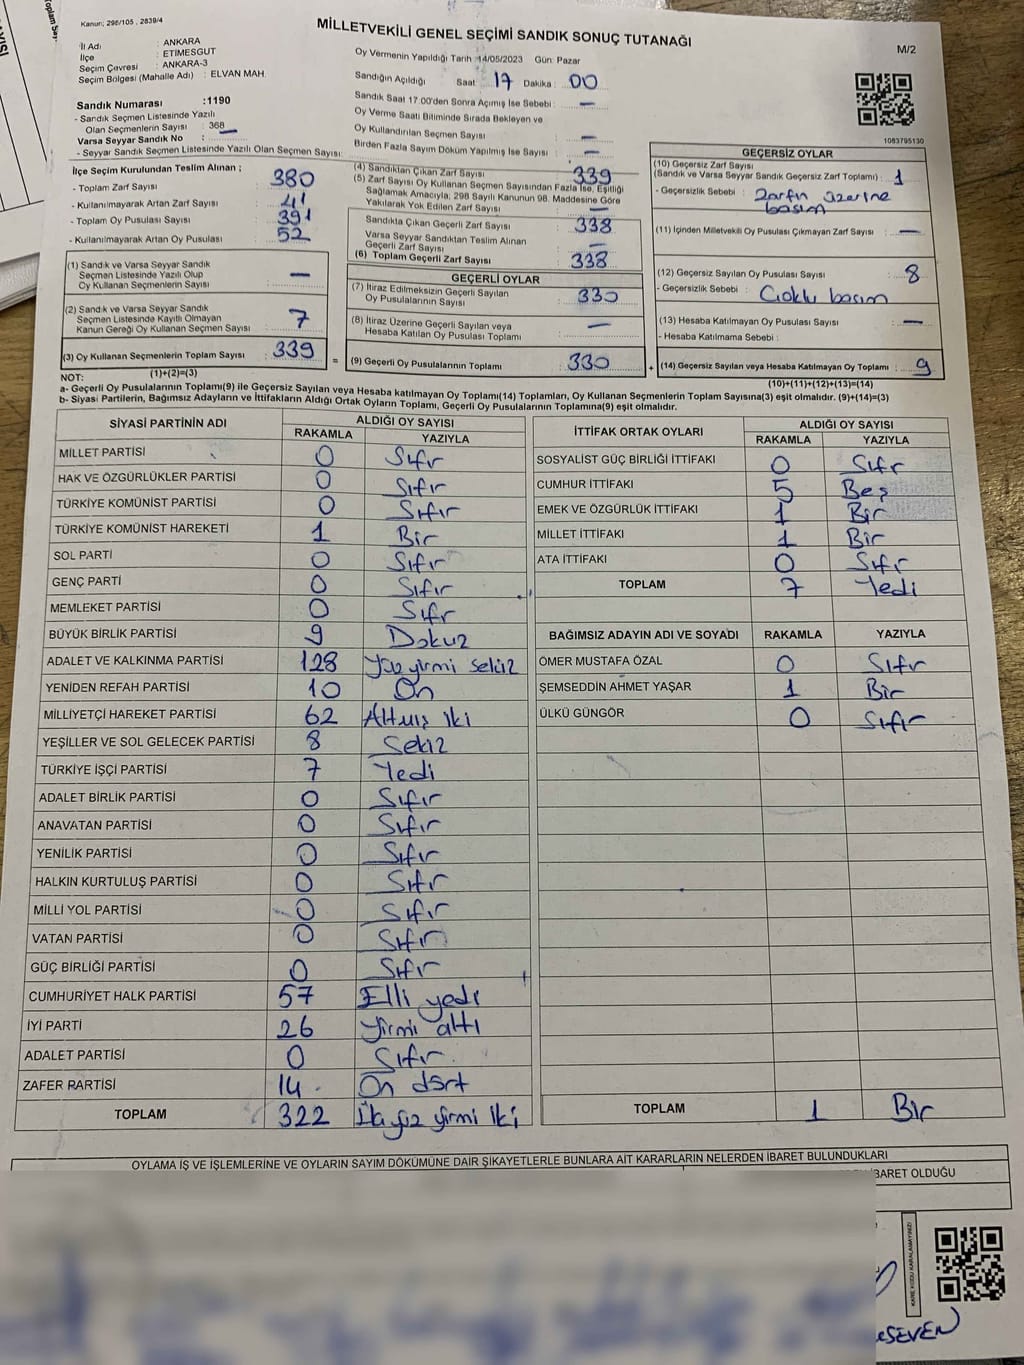 Kanun; 298/105 , 2839/4
MİLLETVEKİLİ GENEL SEÇİMİ SANDIK SONUÇ TUTANAĞI
M/2
İl Adı : ANKARA
İlçe : ETİMESGUT
Seçim Çevresi : ANKARA-3
Seçim Bölgesi (Mahalle Adı) : ELVAN MAH.
Oy Vermenin Yapıldığı Tarih :14/05/2023 Gün: Pazar
Sandığın Açıldığı Saat : 17 Dakika : 00
Sandık Saat 17.00'den Sonra Açılmış İse Sebebi : —
Oy Verme Saati Bitiminde Sırada Bekleyen ve
Oy Kullandırılan Seçmen Sayısı : —
Birden Fazla Sayım Döküm Yapılmış İse Sayısı : —
1083795130
Sandık Numarası :1190
- Sandık Seçmen Listesinde Yazılı
Olan Seçmenlerin Sayısı : 368
Varsa Seyyar Sandık No : —
- Seyyar Sandık Seçmen Listesinde Yazılı Olan Seçmen Sayısı:
İlçe Seçim Kurulundan Teslim Alınan ;
- Toplam Zarf Sayısı : 380
- Kullanılmayarak Artan Zarf Sayısı : 41
- Toplam Oy Pusulası Sayısı : 391
- Kullanılmayarak Artan Oy Pusulası : 52
(1) Sandık ve Varsa Seyyar Sandık
Seçmen Listesinde Yazılı Olup
Oy Kullanan Seçmenlerin Sayısı : —
(2) Sandık ve Varsa Seyyar Sandık
Seçmen Listesinde Kayıtlı Olmayan
Kanun Gereği Oy Kullanan Seçmen Sayısı : 7
(3) Oy Kullanan Seçmenlerin Toplam Sayısı : 339
(1)+(2)=(3)
(4) Sandıktan Çıkan Zarf Sayısı : 339
(5) Zarf Sayısı Oy Kullanan Seçmen Sayısından Fazla İse, Eşitliği
Sağlamak Amacıyla, 298 Sayılı Kanunun 98. Maddesine Göre
Yakılarak Yok Edilen Zarf Sayısı : —
Sandıkta Çıkan Geçerli Zarf Sayısı : 338
Varsa Seyyar Sandıktan Teslim Alınan
Geçerli Zarf Sayısı : —
(6) Toplam Geçerli Zarf Sayısı : 338
GEÇERLİ OYLAR
(7) İtiraz Edilmeksizin Geçerli Sayılan
Oy Pusulalarının Sayısı : 330
(8) İtiraz Üzerine Geçerli Sayılan veya
Hesaba Katılan Oy Pusulaları Toplamı : —
= (9) Geçerli Oy Pusulalarının Toplamı : 330
GEÇERSİZ OYLAR
(10) Geçersiz Zarf Sayısı
(Sandık ve Varsa Seyyar Sandık Geçersiz Zarf Toplamı) : 1
- Geçersizlik Sebebi : Zarfın üzerine
basım
(11) İçinden Milletvekili Oy Pusulası Çıkmayan Zarf Sayısı : —
(12) Geçersiz Sayılan Oy Pusulası Sayısı : 8
- Geçersizlik Sebebi : Çoklu basım
(13) Hesaba Katılmayan Oy Pusulası Sayısı : —
- Hesaba Katılmama Sebebi :
+ (14) Geçersiz Sayılan veya Hesaba Katılmayan Oy Toplamı : 9
(10)+(11)+(12)+(13)=(14)
NOT:
a- Geçerli Oy Pusulalarının Toplamı(9) ile Geçersiz Sayılan veya Hesaba katılmayan Oy Toplamı(14) Toplamları, Oy Kullanan Seçmenlerin Toplam Sayısına(3) eşit olmalıdır. (9)+(14)=(3)
b- Siyasi Partilerin, Bağımsız Adayların ve İttifakların Aldığı Ortak Oyların Toplamı, Geçerli Oy Pusulalarının Toplamına(9) eşit olmalıdır.
SİYASİ PARTİNİN ADI ALDIĞI OY SAYISI
RAKAMLA YAZIYLA
MİLLET PARTİSİ 0 Sıfır
HAK VE ÖZGÜRLÜKLER PARTİSİ 0 Sıfır
TÜRKİYE KOMÜNİST PARTİSİ 0 Sıfır
TÜRKİYE KOMÜNİST HAREKETİ 1 Bir
SOL PARTİ 0 Sıfır
GENÇ PARTİ 0 Sıfır
MEMLEKET PARTİSİ 0 Sıfır
BÜYÜK BİRLİK PARTİSİ 9 Dokuz
ADALET VE KALKINMA PARTİSİ 128 Yüz yirmi sekiz
YENİDEN REFAH PARTİSİ 10 On
MİLLİYETÇİ HAREKET PARTİSİ 62 Altmış iki
YEŞİLLER VE SOL GELECEK PARTİSİ 8 Sekiz
TÜRKİYE İŞÇİ PARTİSİ 7 Yedi
ADALET BİRLİK PARTİSİ 0 Sıfır
ANAVATAN PARTİSİ 0 Sıfır
YENİLİK PARTİSİ 0 Sıfır
HALKIN KURTULUŞ PARTİSİ 0 Sıfır
MİLLİ YOL PARTİSİ 0 Sıfır
VATAN PARTİSİ 0 Sıfır
GÜÇ BİRLİĞİ PARTİSİ 0 Sıfır
CUMHURİYET HALK PARTİSİ 57 Elli yedi
İYİ PARTİ 26 Yirmi altı
ADALET PARTİSİ 0 Sıfır
ZAFER PARTİSİ 14 On dört
TOPLAM 322 Üç yüz yirmi iki
İTTİFAK ORTAK OYLARI ALDIĞI OY SAYISI
RAKAMLA YAZIYLA
SOSYALİST GÜÇ BİRLİĞİ İTTİFAKI 0 Sıfır
CUMHUR İTTİFAKI 5 Beş
EMEK VE ÖZGÜRLÜK İTTİFAKI 1 Bir
MİLLET İTTİFAKI 1 Bir
ATA İTTİFAKI 0 Sıfır
TOPLAM 7 Yedi
BAĞIMSIZ ADAYIN ADI VE SOYADI RAKAMLA YAZIYLA
ÖMER MUSTAFA ÖZAL 0 Sıfır
ŞEMSEDDİN AHMET YAŞAR 1 Bir
ÜLKÜ GÜNGÖR 0 Sıfır
TOPLAM 1 Bir
OYLAMA İŞ VE İŞLEMLERİNE VE OYLARIN SAYIM DÖKÜMÜNE DAİR ŞİKAYETLERLE BUNLARA AİT KARARLARIN NELERDEN İBARET BULUNDUKLARI
BARET OLDUĞU
KARE KODU KARALAMAYINIZ!
SEVEN